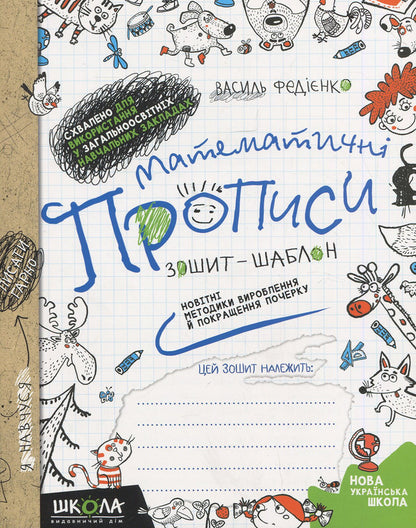 ВАСИЛЬ ФЕДІЄНКО
СХВАЛЕНО ДЛЯ
ВИКОРИСТАННЯ
У ЗАГАЛЬНООСВІТНІХ
НАВЧАЛЬНИХ ЗАКЛАДАХ
Математичні
ПРОПИСИ
ЗОШИТ-ШАБЛОН
НОВІТНІ
МЕТОДИКИ ВИРОБЛЕННЯ
Й ПОКРАЩЕННЯ ПОЧЕРКУ
ЦЕЙ ЗОШИТ НАЛЕЖИТЬ:
Я НАВЧУСЯ
ПИСАТИ
ГАРНО
ШКОЛА
ВИДАВНИЧИЙ ДІМ
НОВА
УКРАЇНСЬКА
ШКОЛА